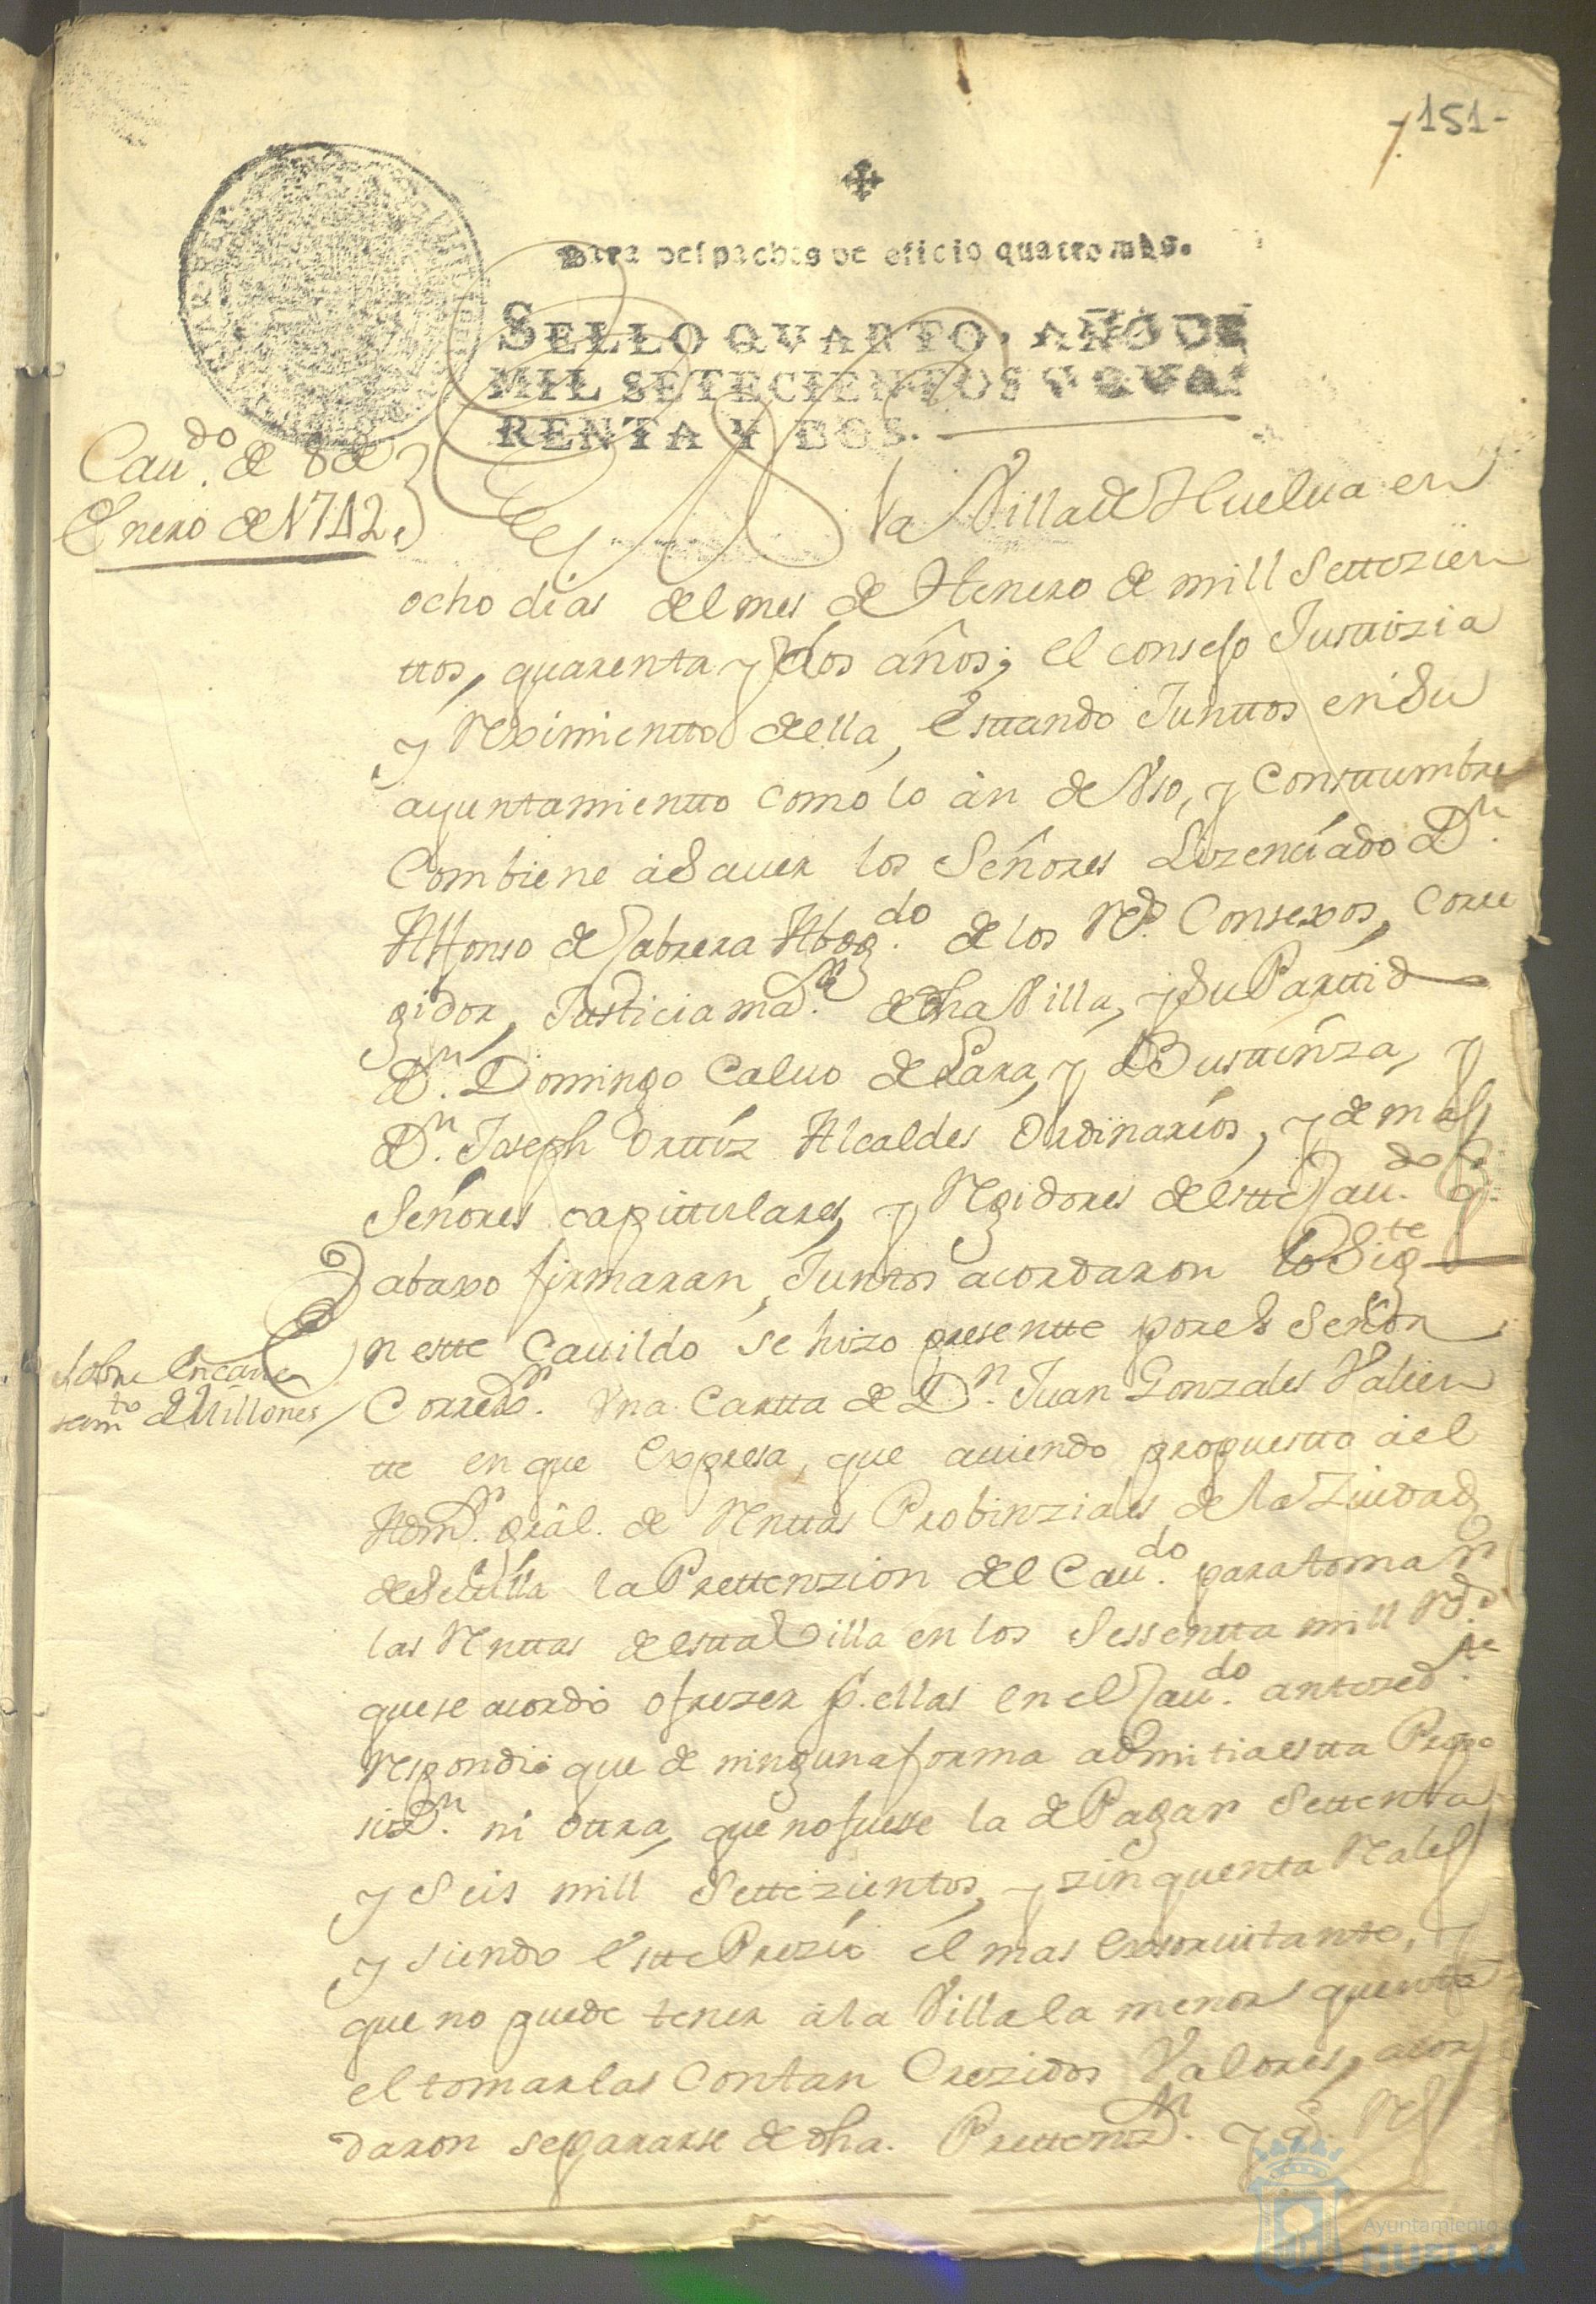 -151-
Para despachos de oficio quatro mrs.
SELLO QVARTO, AÑO DE
MIL SETECIENTOS Y QVA-
RENTA Y DOS.
Cau.do de 8 de
Enero de 1742.
En la Villa de Huelua en
ocho dias del mes de Henero de mill settezien
ttos, quarenta y dos años; el consejo Justtizia
y Reximientto della, esttando Junttos en su
ayuntamientto como lo àn de Vso, y Consttumbre
Combiene à Sauer los Señores Lizenciado D.n
Alfonso de Cabrera Abog.do de los R.s Consexos, Corre
gidor, Justicia ma.r de dha Villa, y su Parttid
D.n Domingo Caluo de Lara, y Busttinza, y
D.n Joseph Orttiz Alcaldes Ordinarios, y demas
Señores capittulares, y Rexidores deestte Cau.do q.
abaxo firmaran, Juntos acordaron lo Sig.te
Sobre Encaue
zam.to de Millones
En estte Cauildo se hizo presentte por el Señor
Correx.r Vna Cartta de D.n Juan Gonzales Valien
tte en que expresa, que auiendo propuestto à el
Adm.r gràl. de Renttas Probinziales de la Ziudad
de Seuilla la Prettenzion del Cau.do para tomar
las Renttas de estta Villa en los Sessentta mill R.s
que se acordó ofrezer p.r ellas en el Cau.do antezed.te
respondió que de ninguna forma admitia estta Propo
siz.n ni ottra, que no fuesse la de Pagar Settenta
y Seis mill Settezientos, y zinquenta Reales
y siendo estte Prezio el mas exsorvitante, y
que no puede tener à la Villa la menor quenta
el tomarlas con tan Crezidos Valores, acor
daron separarse de dha. Prettenz.n y
Ayuntamiento de
HUELVA